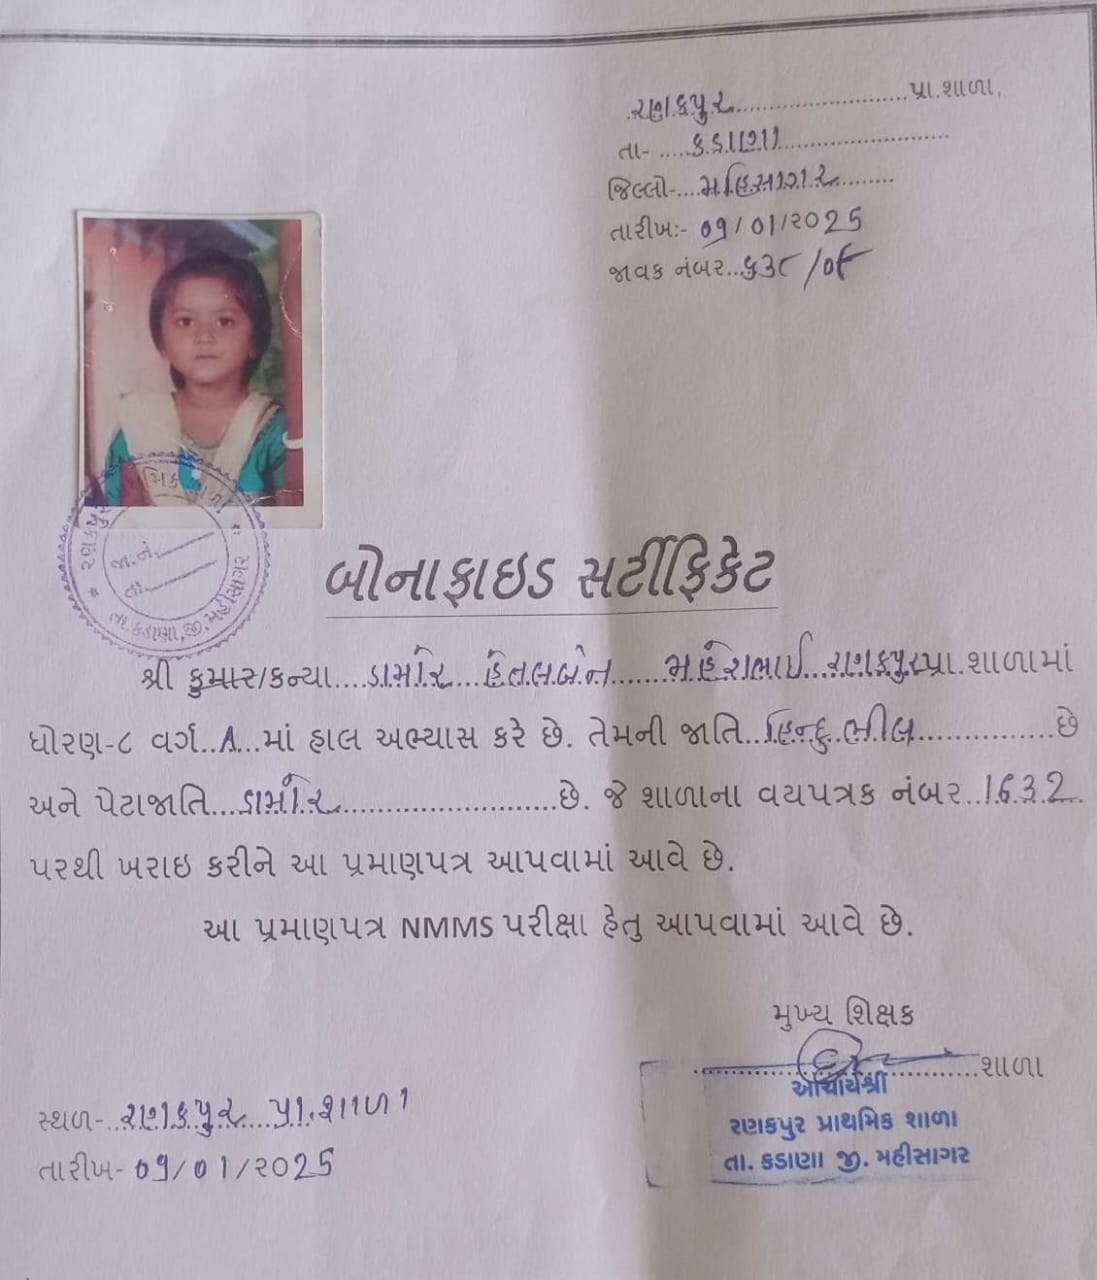 રણકપુર.........................પ્રા.શાળા,
તા- .....કડાણા.........................
જિલ્લો-....મહિસાગર.........
તારીખઃ- 09/01/2025
જાવક નંબર..૬૩૮/૦૯
રણકપુર પ્રાથમિક શાળા
જા.નં.
તા.
તા.કડાણા,જી.મહીસાગર
બોનાફાઇડ સર્ટીફિકેટ
શ્રી કુમાર/કન્યા....ડામોર...હેતલબેન.......મહેશભાઈ...રણકપુરપ્રા.શાળામાં
ધોરણ-૮ વર્ગ..A...માં હાલ અભ્યાસ કરે છે. તેમની જાતિ..હિન્દુ ભીલ...............છે
અને પેટાજાતિ...ડામોર........................છે. જે શાળાના વયપત્રક નંબર..1632
પરથી ખરાઇ કરીને આ પ્રમાણપત્ર આપવામાં આવે છે.
આ પ્રમાણપત્ર NMMS પરીક્ષા હેતુ આપવામાં આવે છે.
મુખ્ય શિક્ષક
.................................શાળા
આચાર્યશ્રી
રણકપુર પ્રાથમિક શાળા
તા. કડાણા જી. મહીસાગર
સ્થળ-..રણકપુર...પ્રા.શાળા
તારીખ- 09/01/2025